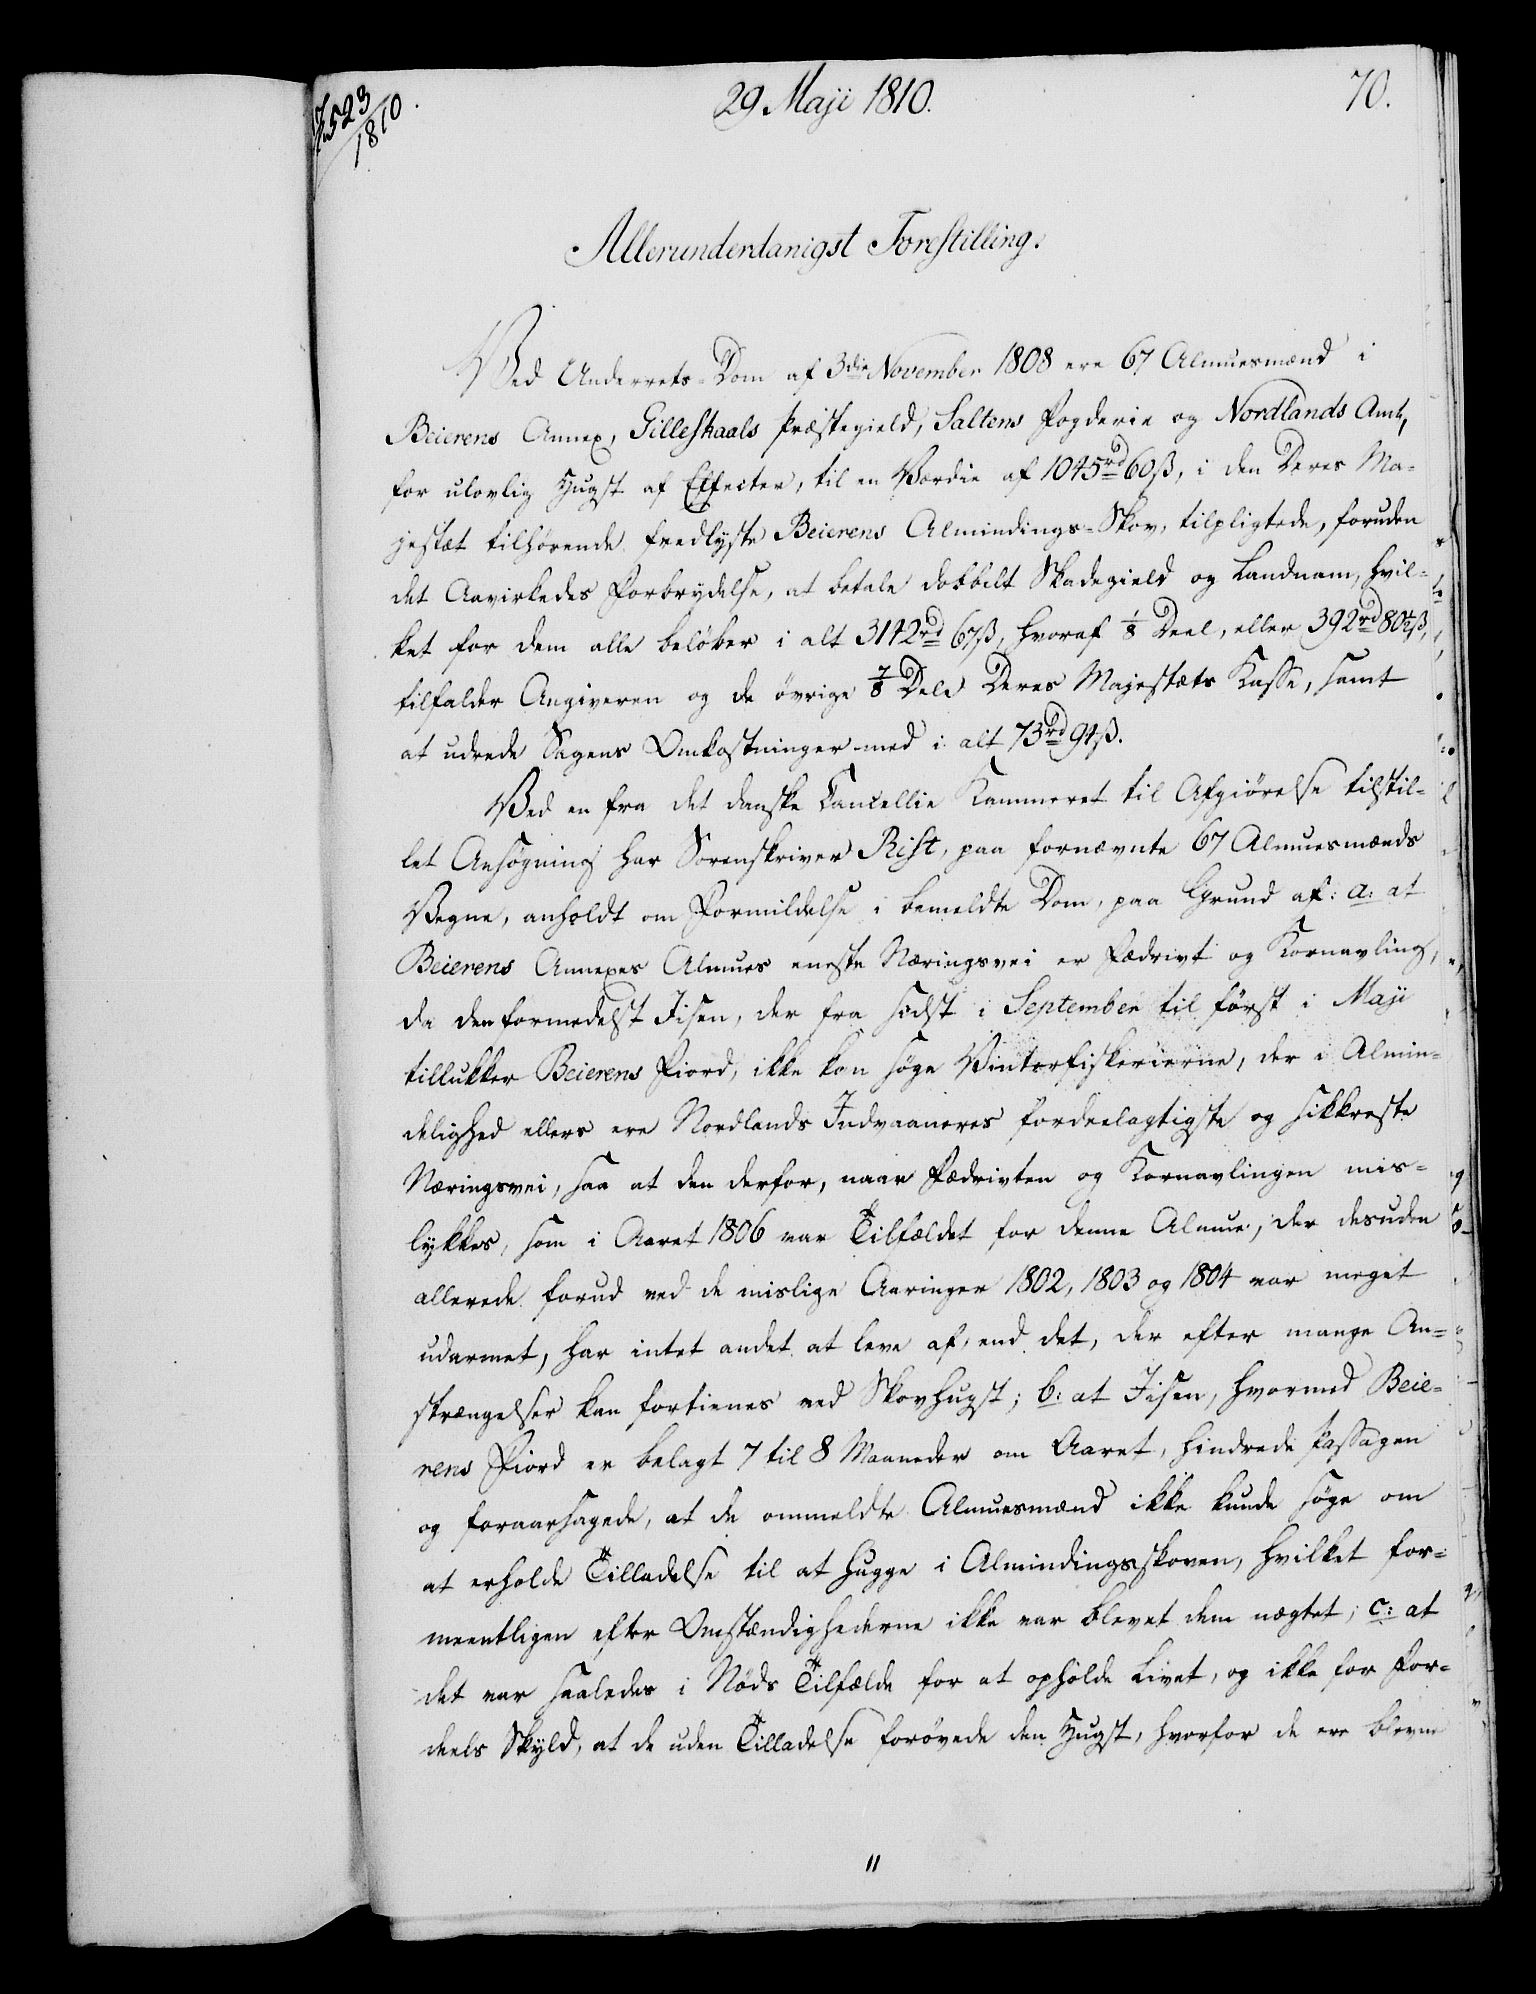 523/1810.
29 Maji 1810.
70.
Allerunderdanigst Forestilling.
Ved Underrets-Dom af 3die November 1808 ere 67 Almuesmænd i
Beierens Annex, Gilleskaals Præstegield, Saltens Fogderie og Nordlands Amt,
for ulovlig Hugst af Effecter, til en Værdie af 1045rd 60ß, i den Deres Ma-
jestæt tilhørende fredlyste Beierens Almindings-Skov, tilpligtede, foruden
det Aavirkedes Forbrydelse, at betale dobbelt Skadegield og Landnam, hvil-
ket for dem alle beløber i alt 3142rd 67ß, hvoraf 1/8 Deel, eller 392rd 80½ß,
tilfalder Angiveren og de övrige 7/8 Dele Deres Majestæts Kasse, samt
at udrede Sagens Omkostninger med i alt 73rd 94ß.
Ved en fra det danske Cancellie Kammeret til Afgiörelse tilstil-
let Ansøgning har Sorenskriver Rist, paa fornævnte 67 Almuesmænds
Vegne, anholdt om Formildelse i bemeldte Dom, paa Grund af: a: at
Beierens Annexes Almues eneste Næringsvei er Fædrivt og Kornavling,
da den formedelst Iisen, der fra sidst i September til först i Maji
tillukker Beierens Fiord, ikke kan söge Vinterfiskerierne, der i Almin-
delighed ellers ere Nordlands Indvaaneres fordeelagtigste og sikkreste
Næringsvei, saa at den derfor, naar Fædrivten og Kornavlingen mis-
lykkes, som i Aaret 1806 var Tilfældet for denne Almue, der desuden
allerede forud ved de mislige Aaringer 1802, 1803 og 1804 var meget
udarmet, har intet andet at leve af, end det, der efter mange An-
strængelser kan fortienes ved Skovhugst; b: at Iisen, hvormed Beie-
rens Fiord er belagt 7 til 8 Maaneder om Aaret, hindrede Passagen
og foraarsagede, at de ommeldte Almuesmænd ikke kunde söge om
at erholde Tilladelse til at hugge i Almindingsskoven, hvilket for-
meentligen efter Omstændighederne ikke var blevet dem nægtet; c: at
det var saaledes i Nöds Tilfælde for at opholde Livet, og ikke for For-
deels Skyld, at de uden Tilladelse forövede den Hugst, hvorfor de ere blevne
"